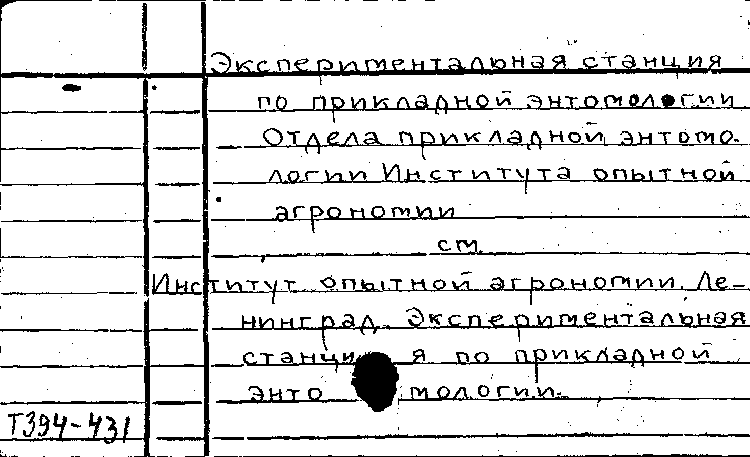 Экспериментальная станция
по прикладной энтомологии
Отдела прикладной энтомо-
логии Института опытной
агрономии
см.
Институт опытной агрономии. Ле-
нинград. Экспериментальная
станция по прикладной
энтомологии.
Т394-431